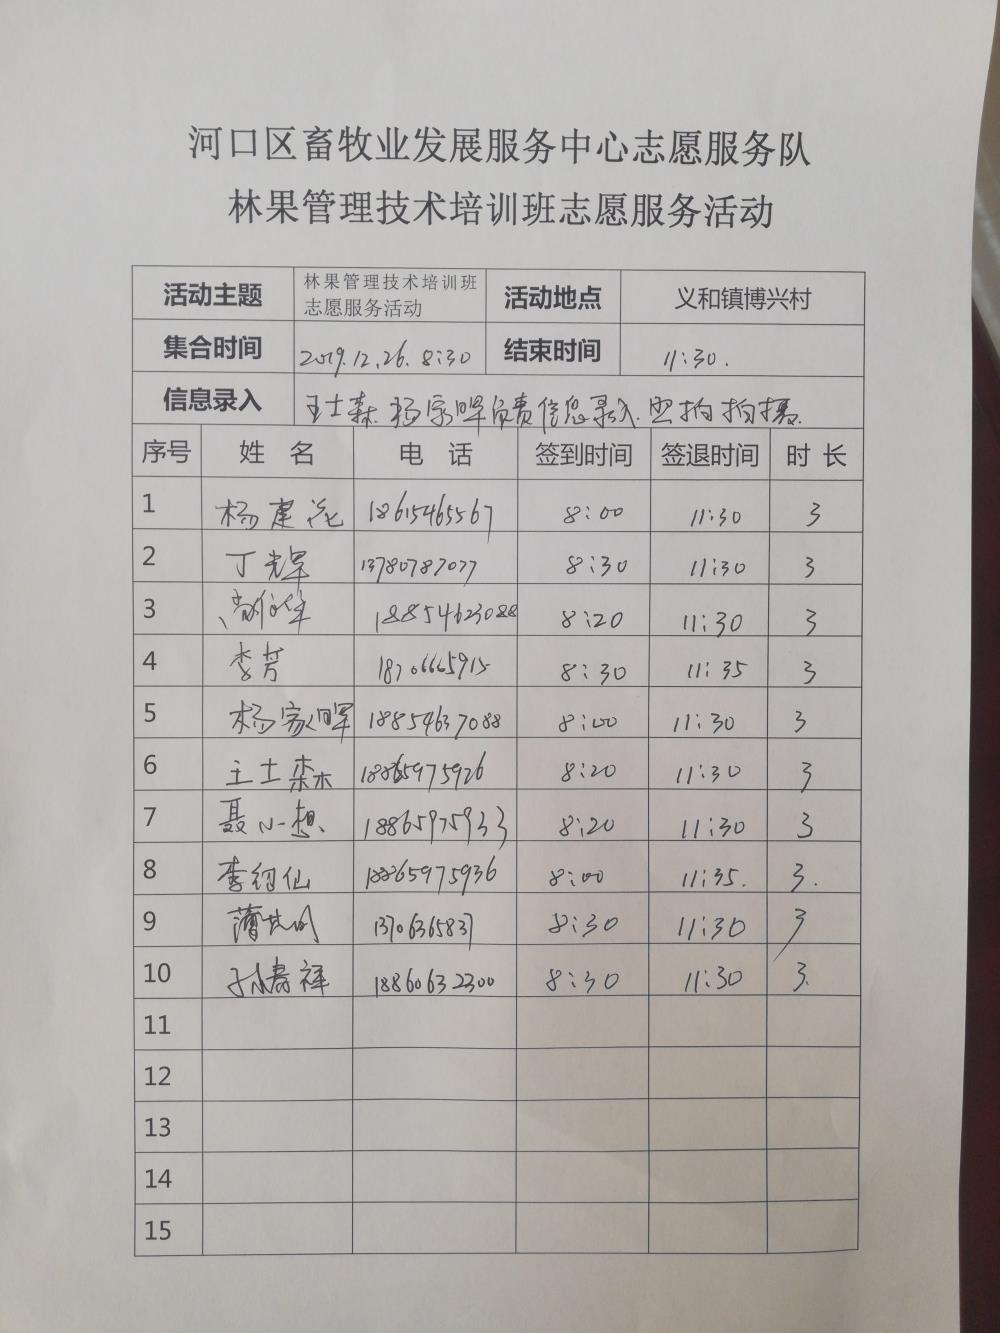 河口区畜牧业发展服务中心志愿服务队
林果管理技术培训班志愿服务活动
活动主题 林果管理技术培训班 志愿服务活动 活动地点 义和镇博兴村
集合时间 2019.12.26. 8:30 结束时间 11:30.
信息录入 王士森 杨家晖负责信息录入 照拍拍摄.
序号 姓 名 电 话 签到时间 签退时间 时 长
1 杨建花 18615465567 8:00 11:30 3
2 丁光军 13780787077 8:30 11:30 3
3 18854623088 8:20 11:30 3
4 李芳 18706665915 8:30 11:35 3
5 杨家晖 18854637088 8:00 11:30 3
6 王士森 18865975926 8:20 11:30 3
7 聂小想 18865975933 8:20 11:30 3
8 李绍仙 18865975936 8:00 11:35. 3.
9 8:30 11:30 3
10 孙寿祥 18860632300 8:30 11:30 3.
11
12
13
14
15